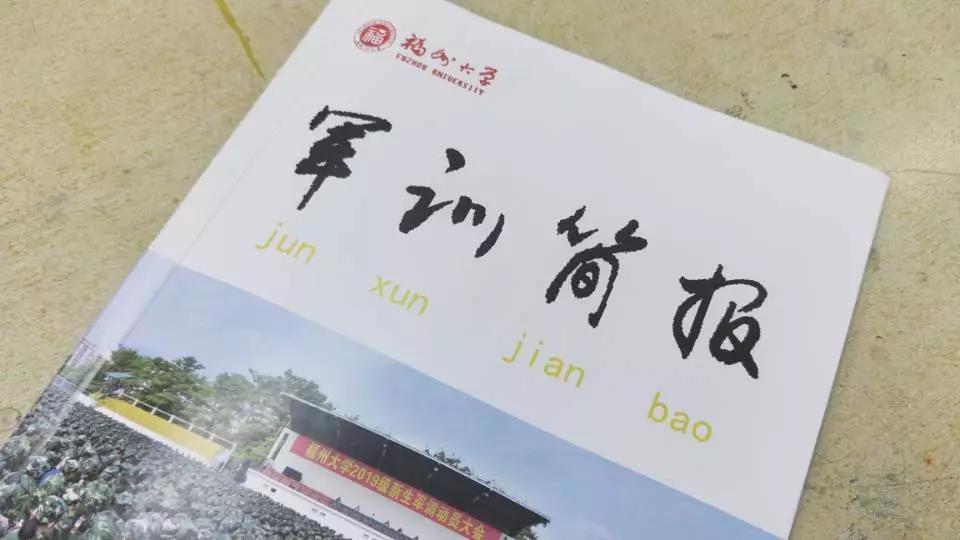 福
福州大学
FUZHOU UNIVERSITY
军训简报
jun xun jian bao
福州大学2019级新生军训动员大会